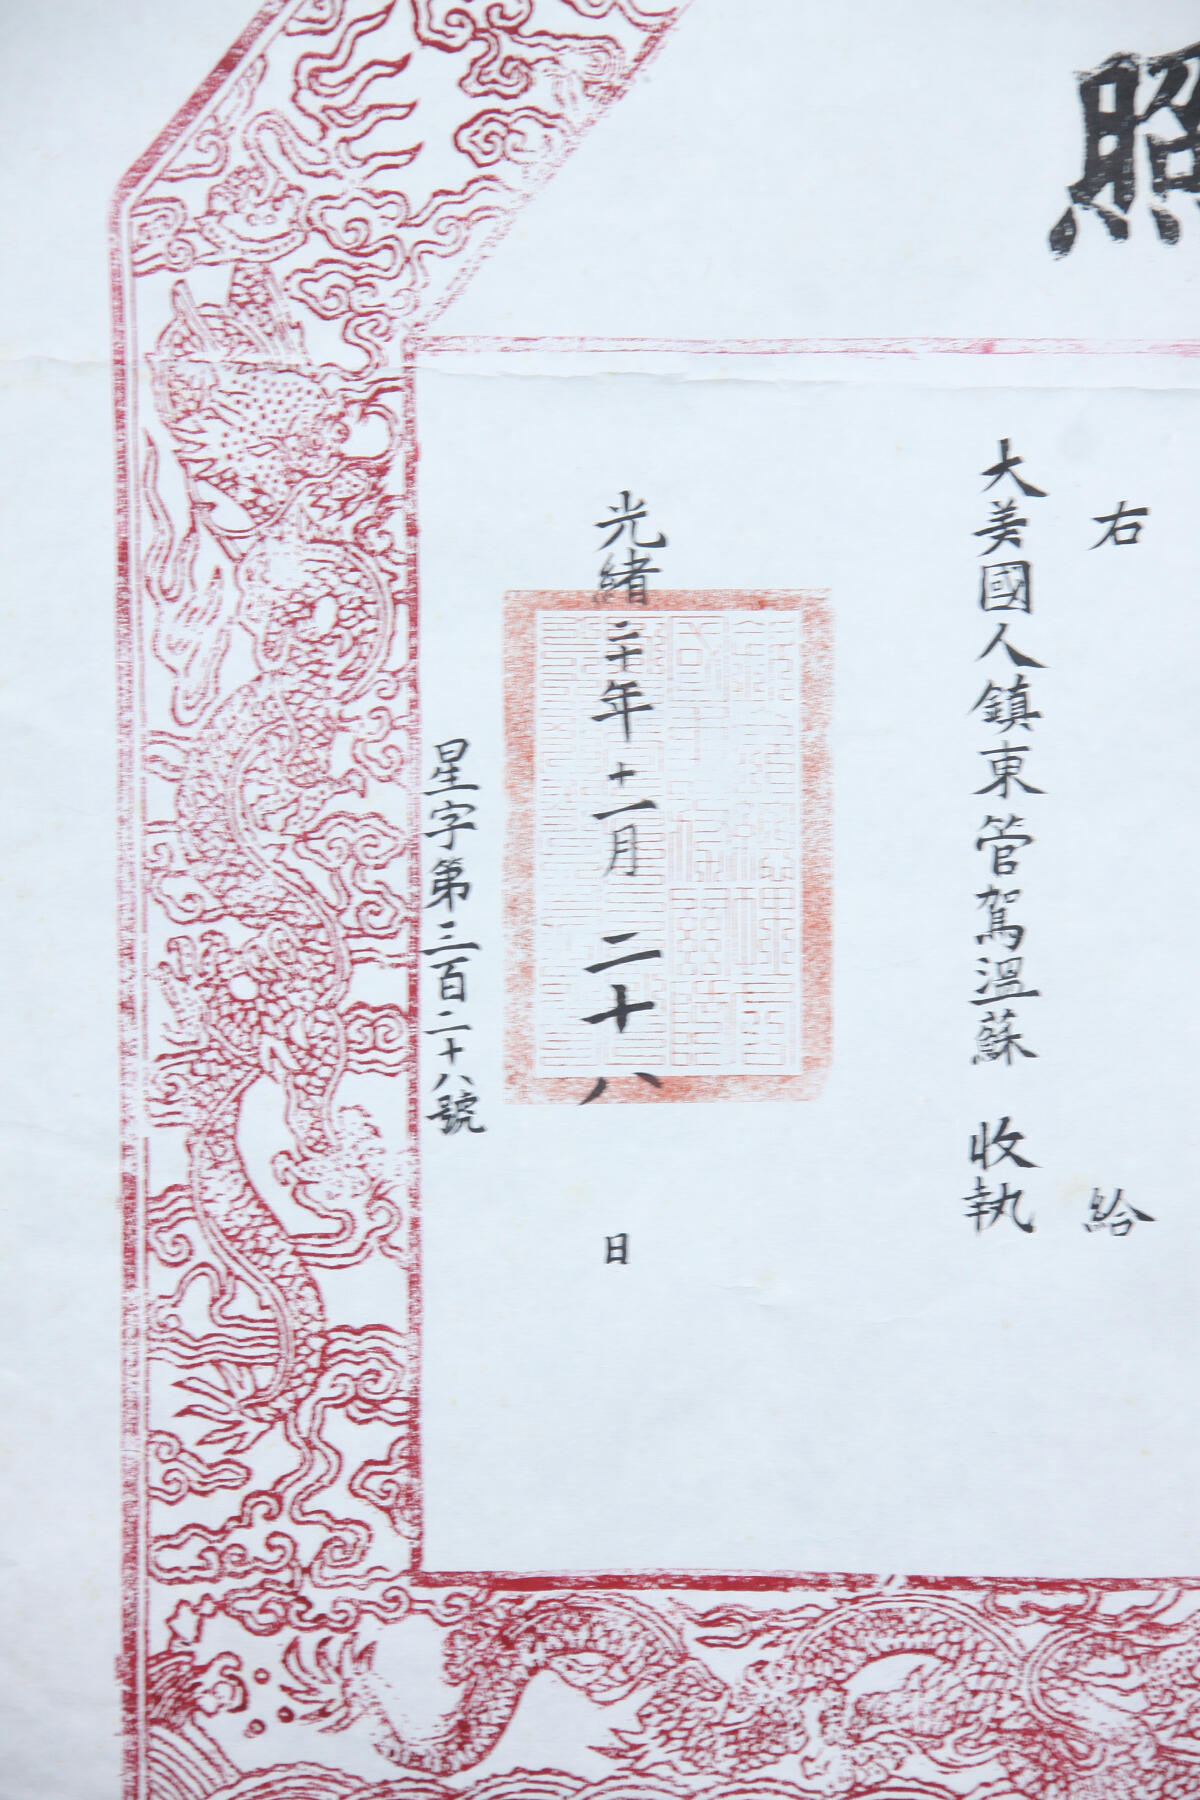 照
右
給
大美國人鎮東管駕溫蘇 收執
光緒二十年十一月 二十八 日
星字第三百二十八號